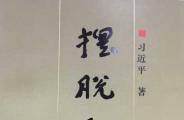 摆脱
习近平 著